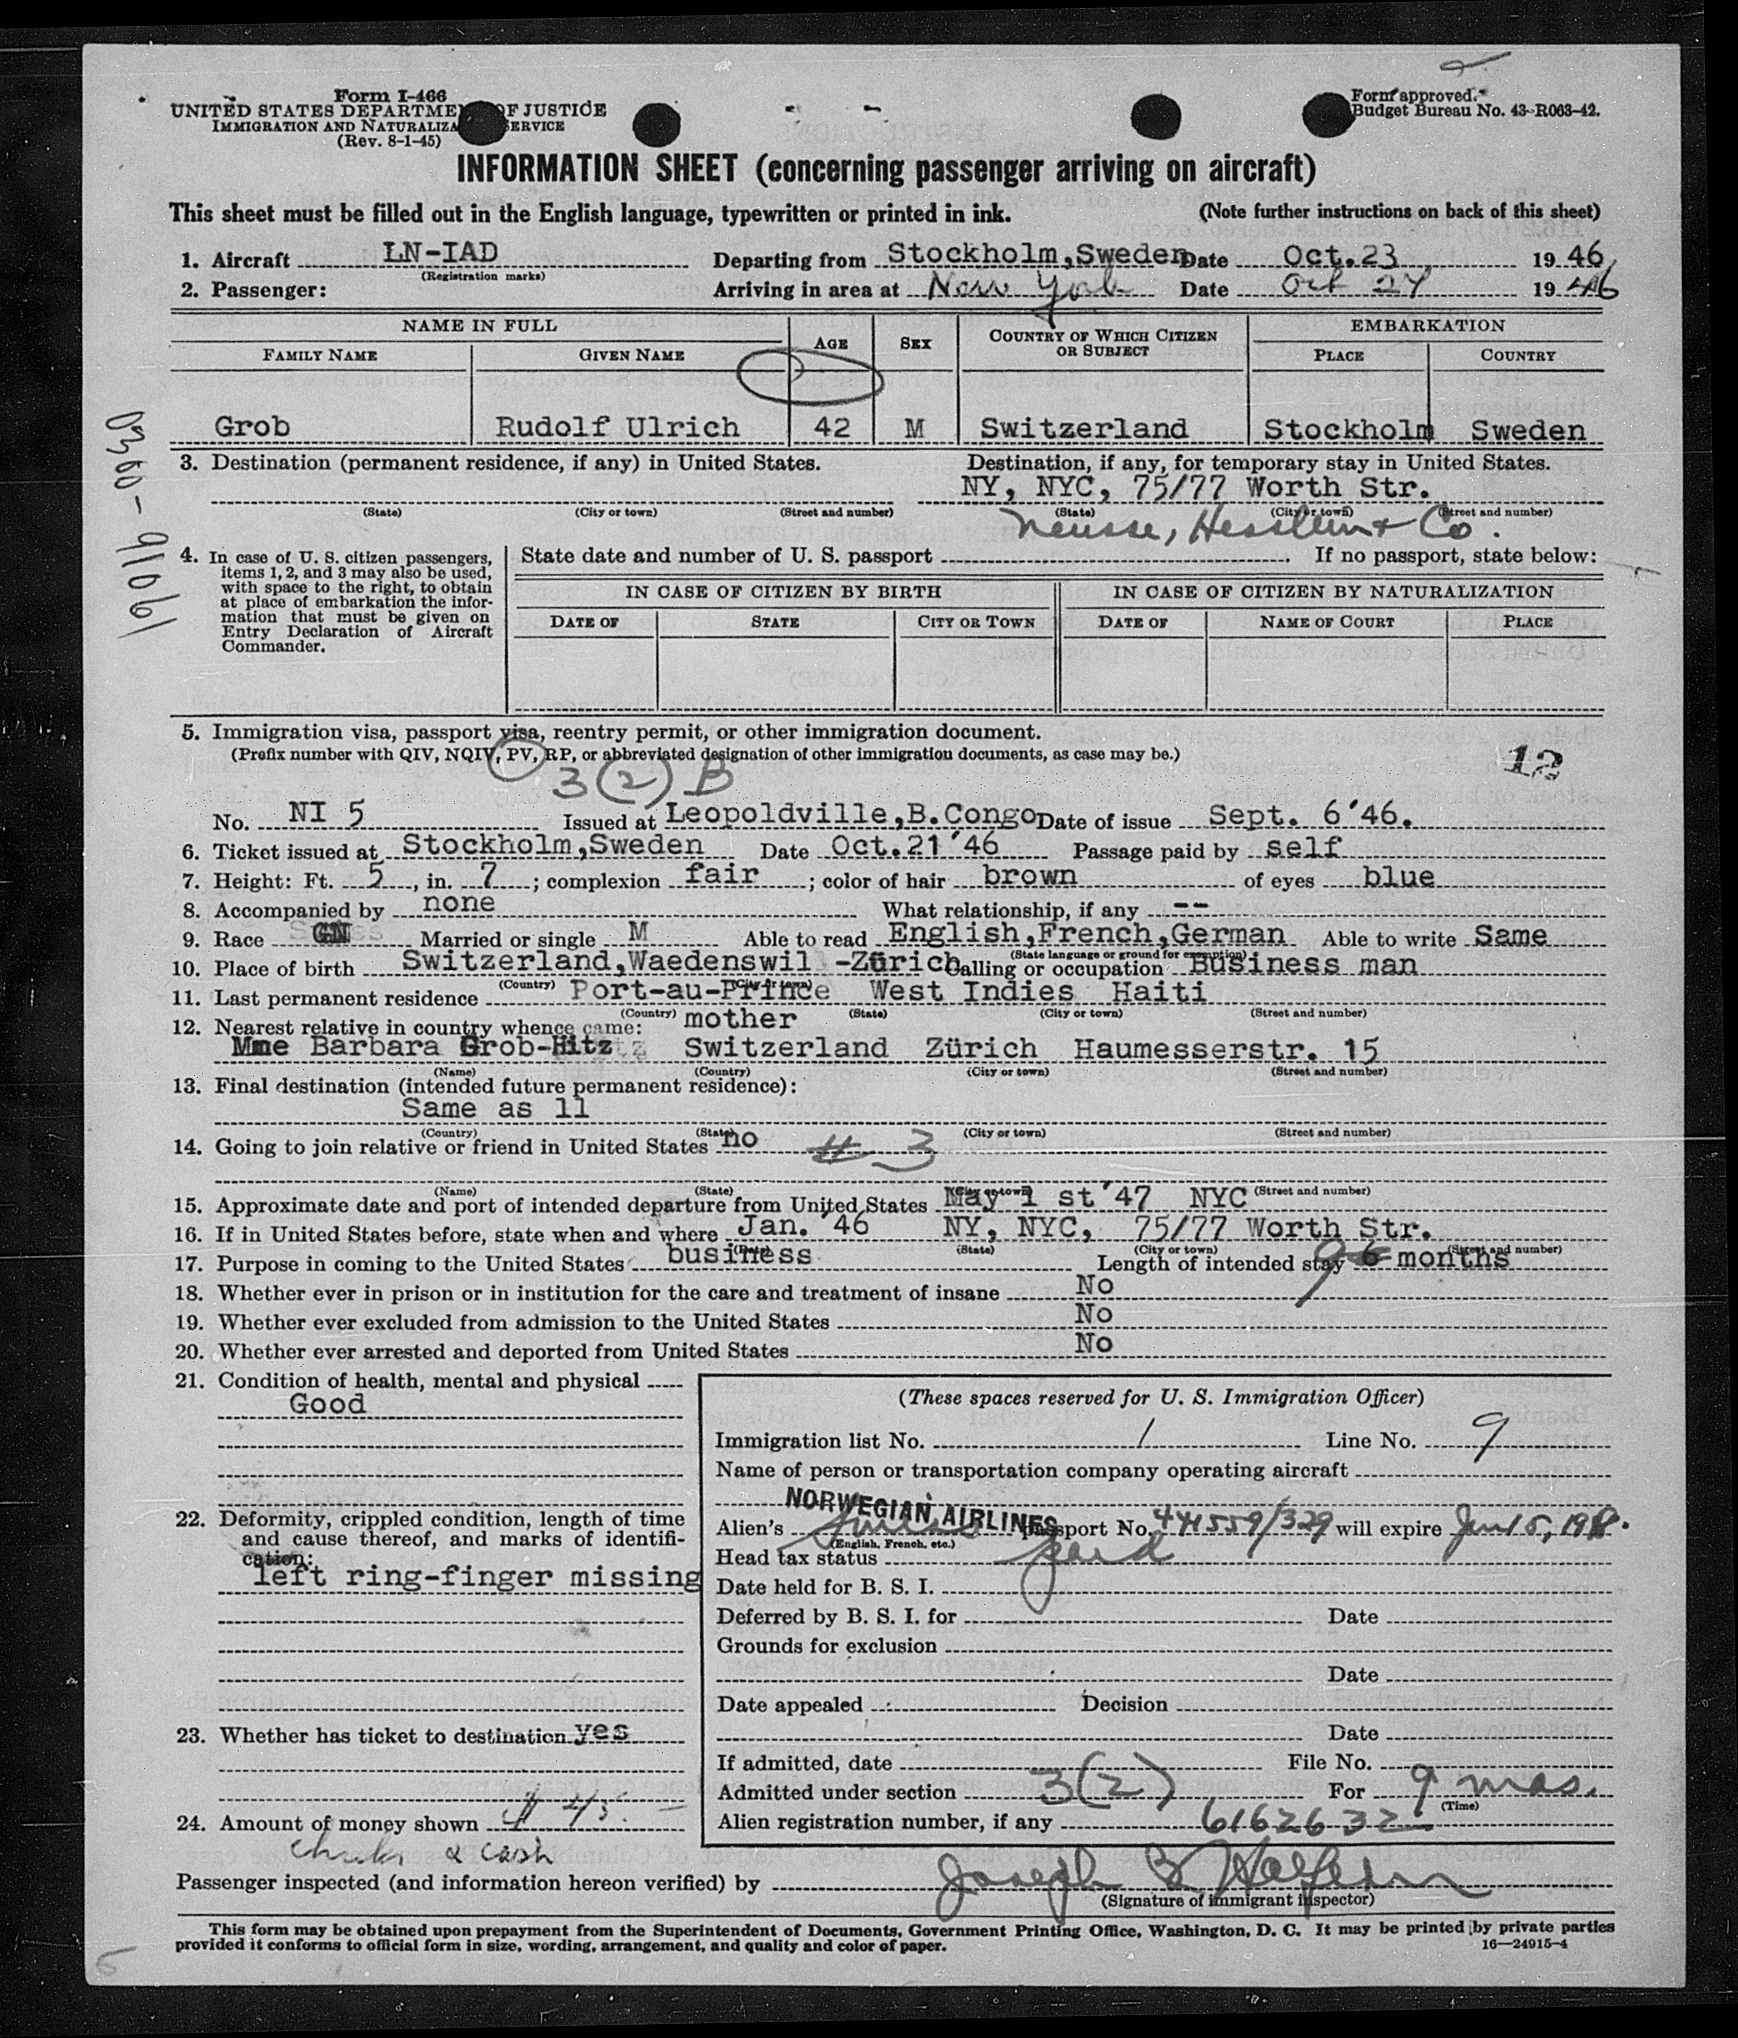 Form I-466
UNITED STATES DEPARTMENT OF JUSTICE
IMMIGRATION AND NATURALIZATION SERVICE
(Rev. 8-1-45)
Form approved.
Budget Bureau No. 43-R063-42.
INFORMATION SHEET (concerning passenger arriving on aircraft)
This sheet must be filled out in the English language, typewritten or printed in ink. (Note further instructions on back of this sheet)
1. Aircraft LN-IAD Departing from Stockholm,Sweden Date Oct.23 1946
(Registration marks)
2. Passenger: Arriving in area at New York Date Oct 24 1946
NAME IN FULL AGE SEX COUNTRY OF WHICH CITIZEN OR SUBJECT EMBARKATION
FAMILY NAME GIVEN NAME PLACE COUNTRY
Grob Rudolf Ulrich 42 M Switzerland Stockholm Sweden
0300-91061
3. Destination (permanent residence, if any) in United States. Destination, if any, for temporary stay in United States.
NY, NYC, 75/77 Worth Str.
(State) (City or town) (Street and number) (State) (City or town) (Street and number)
Neusse, Hesslein & Co.
4. In case of U. S. citizen passengers, items 1, 2, and 3 may also be used, with space to the right, to obtain at place of embarkation the information that must be given on Entry Declaration of Aircraft Commander.
State date and number of U. S. passport If no passport, state below:
IN CASE OF CITIZEN BY BIRTH IN CASE OF CITIZEN BY NATURALIZATION
DATE OF STATE CITY OR TOWN DATE OF NAME OF COURT PLACE
5. Immigration visa, passport visa, reentry permit, or other immigration document.
(Prefix number with QIV, NQIV, PV, RP, or abbreviated designation of other immigration documents, as case may be.)
12
3(2)B
No. NI 5 Issued at Leopoldville,B.Congo Date of issue Sept. 6'46.
6. Ticket issued at Stockholm,Sweden Date Oct.21'46 Passage paid by self
7. Height: Ft. 5, in. 7; complexion fair; color of hair brown of eyes blue
8. Accompanied by none What relationship, if any --
9. Race GN Married or single M Able to read English,French,German Able to write Same
(State language or ground for exemption)
10. Place of birth Switzerland,Waedenswil -Zürich Calling or occupation Business man
(Country) (City or town)
11. Last permanent residence Port-au-Prince West Indies Haiti
(Country) (State) (City or town) (Street and number)
12. Nearest relative in country whence came: mother
Mme Barbara Grob-Hitz Switzerland Zürich Haumesserstr. 15
(Name) (Country) (City or town) (Street and number)
13. Final destination (intended future permanent residence):
Same as 11
(Country) (State) (City or town) (Street and number)
14. Going to join relative or friend in United States no # 3
(Name) (State) (City or town) (Street and number)
15. Approximate date and port of intended departure from United States May 1 st'47 NYC
16. If in United States before, state when and where Jan. '46 NY, NYC, 75/77 Worth Str.
(Date) (State) (City or town) (Street and number)
17. Purpose in coming to the United States business Length of intended stay 9 6 months
18. Whether ever in prison or in institution for the care and treatment of insane No
19. Whether ever excluded from admission to the United States No
20. Whether ever arrested and deported from United States No
21. Condition of health, mental and physical
Good
22. Deformity, crippled condition, length of time and cause thereof, and marks of identification:
left ring-finger missing
23. Whether has ticket to destination yes
24. Amount of money shown $ 45.
Checks & cash
(These spaces reserved for U. S. Immigration Officer)
Immigration list No. 1 Line No. 9
Name of person or transportation company operating aircraft
NORWEGIAN AIRLINES
Alien's Swiss passport No. 441559/329 will expire Jan 5, 1948.
(English, French, etc.)
Head tax status paid
Date held for B. S. I.
Deferred by B. S. I. for Date
Grounds for exclusion
Date
Date appealed Decision
Date
If admitted, date File No.
Admitted under section 3(2) For 9 mos.
(Time)
Alien registration number, if any 6162632
Passenger inspected (and information hereon verified) by Joseph
(Signature of immigrant inspector)
This form may be obtained upon prepayment from the Superintendent of Documents, Government Printing Office, Washington, D. C. It may be printed by private parties
provided it conforms to official form in size, wording, arrangement, and quality and color of paper. 16—24915-4
5